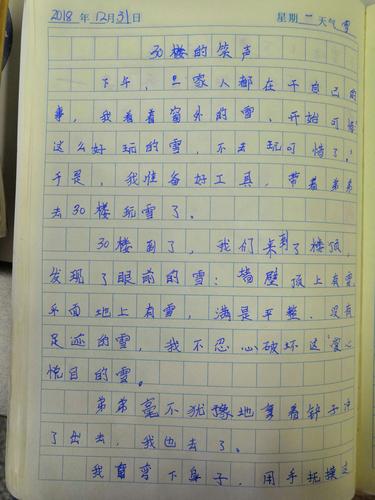 2018年12月31日 星期一 天气雪
30楼的笑声
下午，旦家人都在干自己的
事，我看着窗外的雪，开始可惜
这么好玩的雪，不去玩可惜了！
于是，我准备好工具，带着弟弟
去30楼玩雪了。
30楼到了，我们来到了楼顶，
发现了眼前的雪：墙壁顶上有雪
地上有雪，满是平整、没有
足迹的雪，我不忍心破坏这赏心
悦目的雪。
弟弟毫不犹豫地拿着铲子冲
了出去，我也去了。
我弯下身子，用手抚摸这